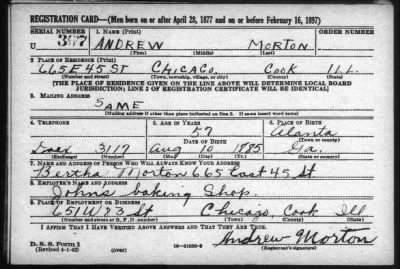 REGISTRATION CARD—(Men born on or after April 28, 1877 and on or before February 16, 1897)
SERIAL NUMBER 1. NAME (Print) ORDER NUMBER
U 307 ANDREW MORTON
(First) (Middle) (Last)
2. PLACE OF RESIDENCE (Print)
665 E 45 ST CHICAGO. COOK ILL.
(Number and street) (Town, township, village, or city) (County) (State)
[THE PLACE OF RESIDENCE GIVEN ON THE LINE ABOVE WILL DETERMINE LOCAL BOARD
JURISDICTION; LINE 2 OF REGISTRATION CERTIFICATE WILL BE IDENTICAL]
3. MAILING ADDRESS
SAME
[Mailing address if other than place indicated on line 2. If same insert word same]
4. TELEPHONE 5. AGE IN YEARS 6. PLACE OF BIRTH
57 Alanta
DATE OF BIRTH (Town or county)
3117 Aug 10 1885 Ga.
(Exchange) (Number) (Mo.) (Day) (Yr.) (State or country)
7. NAME AND ADDRESS OF PERSON WHO WILL ALWAYS KNOW YOUR ADDRESS
Bertha Morton 665 East 45 St
8. EMPLOYER'S NAME AND ADDRESS
Johns baking Shop.
9. PLACE OF EMPLOYMENT OR BUSINESS
651 W 83 St Chicago, Cook Ill
(Number and street or R. F. D. number) (Town) (County) (State)
I AFFIRM THAT I HAVE VERIFIED ABOVE ANSWERS AND THAT THEY ARE TRUE.
D. S. S. Form 1
(Revised 4-1-42) (over) 16—21630-2 Andrew Morton
(Registrant's signature)